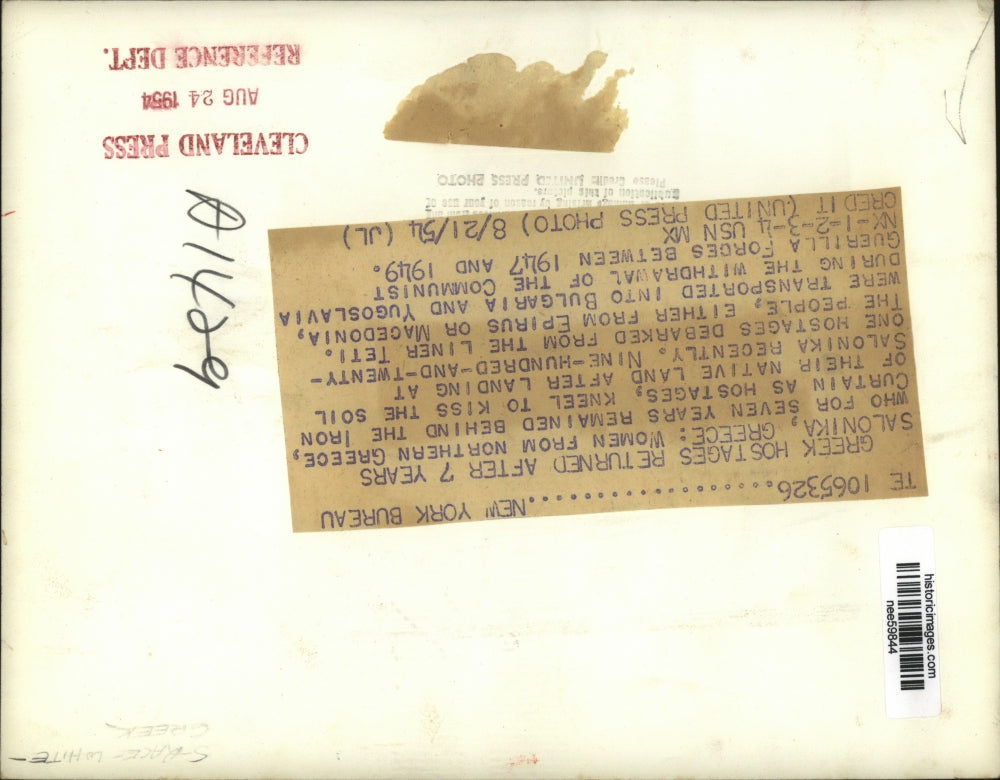 TE 1065326....................NEW YORK BUREAU
GREEK HOSTAGES RETURNED AFTER 7 YEARS
SALONIKA, GREECE: WOMEN FROM NORTHERN GREECE,
WHO FOR SEVEN YEARS REMAINED BEHIND THE IRON
CURTAIN AS HOSTAGES, KNEEL TO KISS THE SOIL
OF THEIR NATIVE LAND AFTER LANDING AT
SALONIKA RECENTLY. NINE-HUNDRED-AND-TWENTY-
ONE HOSTAGES DEBARKED FROM THE LINER TETI.
THE PEOPLE, EITHER FROM EPIRUS OR MACEDONIA,
WERE TRANSPORTED INTO BULGARIA AND YUGOSLAVIA
DURING THE WITHDRAWAL OF THE COMMUNIST
GUERILLA FORCES BETWEEN 1947 AND 1949.
NX-1-2-3-4 USN MX
CREDIT (UNITED PRESS PHOTO) 8/21/54 (JL)
damage arising by reason of your use of
publication of this picture.
Please Credit: UNITED PRESS PHOTO
CLEVELAND PRESS
AUG 24 1954
REFERENCE DEPT.
historicimages.com
nee59844
WHITE-
GREEK